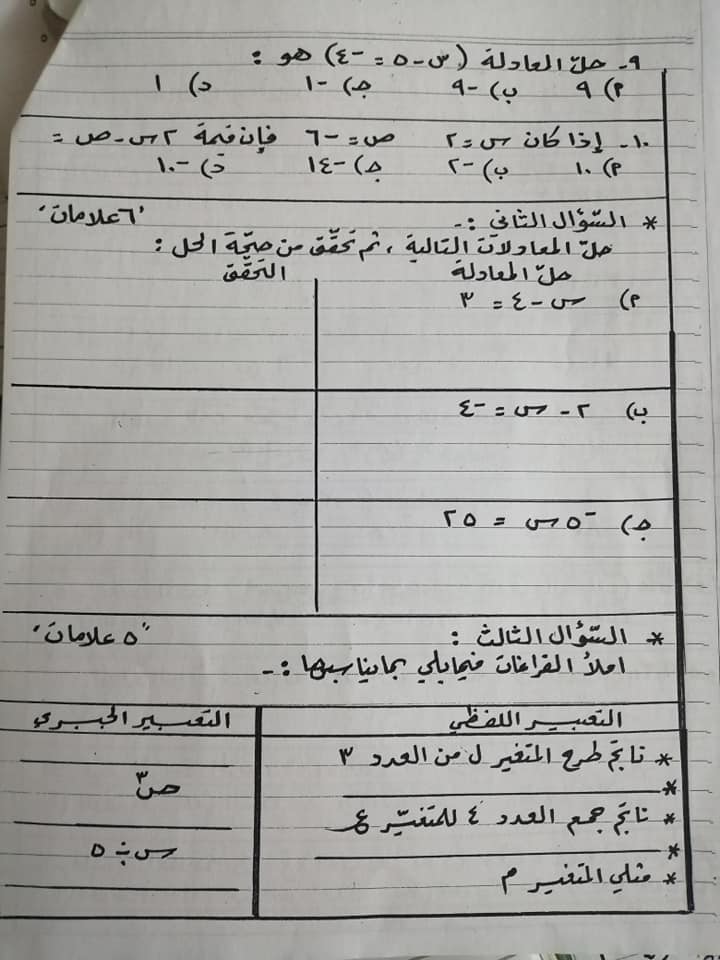 ٩- حلّ المعادلة (س - ٥ = -٤) هو :
أ) ٩ ب) -٩ جـ) -١ د) ١
١٠- إذا كان س = ٢ ص = -٦ فإن قيمة ٢س - ص =
أ) ١٠ ب) -٢ جـ) -١٤ د) -١٠
* السّؤال الثاني :- "٦ علامات"
حلّ المعادلات التالية ، ثم تحقّق من صحّة الحل :
حلّ المعادلة التحقّق
أ) س - ٤ = ٣
ب) ٢ - س = -٤
جـ) -٥س = ٢٥
* السّؤال الثالث : "٥ علامات"
املأ الفراغات فيما يلي بما يناسبها :-
التعبير اللفظي التعبير الجبري
* ناتج طرح المتغير ل من العدد ٣
* ص٣
* ناتج جمع العدد ٤ للمتغيّر ع
* س ÷ ٥
* مثلي المتغير م